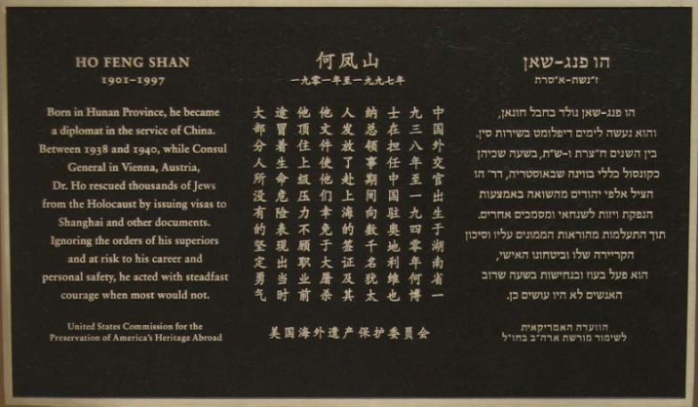 HO FENG SHAN
1901–1997
Born in Hunan Province, he became
a diplomat in the service of China.
Between 1938 and 1940, while Consul
General in Vienna, Austria,
Dr. Ho rescued thousands of Jews
from the Holocaust by issuing visas to
Shanghai and other documents.
Ignoring the orders of his superiors
and at risk to his career and
personal safety, he acted with steadfast
courage when most would not.
United States Commission for the
Preservation of America's Heritage Abroad
何凤山
一九零一年至一九九七年
中国外交官出生于湖南省一
九三八年至一九四零年何博
士在担任中国驻奥地利维也
纳总领事期间向数千名犹太
人发放了赴上海的签证及其
他文件使他们幸免于大屠杀
他顶住上级压力不顾职业前
途冒着生命危险表现出当时
大部分人所没有的坚定勇气
美国海外遗产保护委员会
הו פנג-שאן
ז"נשת-א"סרת
הו פנג-שאן נולד בחבל חונאן,
והוא נעשה לימים דיפלומט בשירות סין.
בין השנים ח"צרת ו-ש"ת, בשעה שכיהן
כקונסול כללי בווינה שבאוסטריה, הדר' הו
הציל אלפי יהודים מהשואה באמצעות
הנפקת ויזות לשנחאי ומסמכים אחרים.
תוך התעלמות מהוראות הממונים עליו וסיכון
הקריירה שלו וביטחונו האישי,
הוא פעל בעוז ובנחישות בשעה שרוב
האנשים לא היו עושים כן.
הוועדה האמריקאית
לשימור מורשת ארה"ב בחו"ל